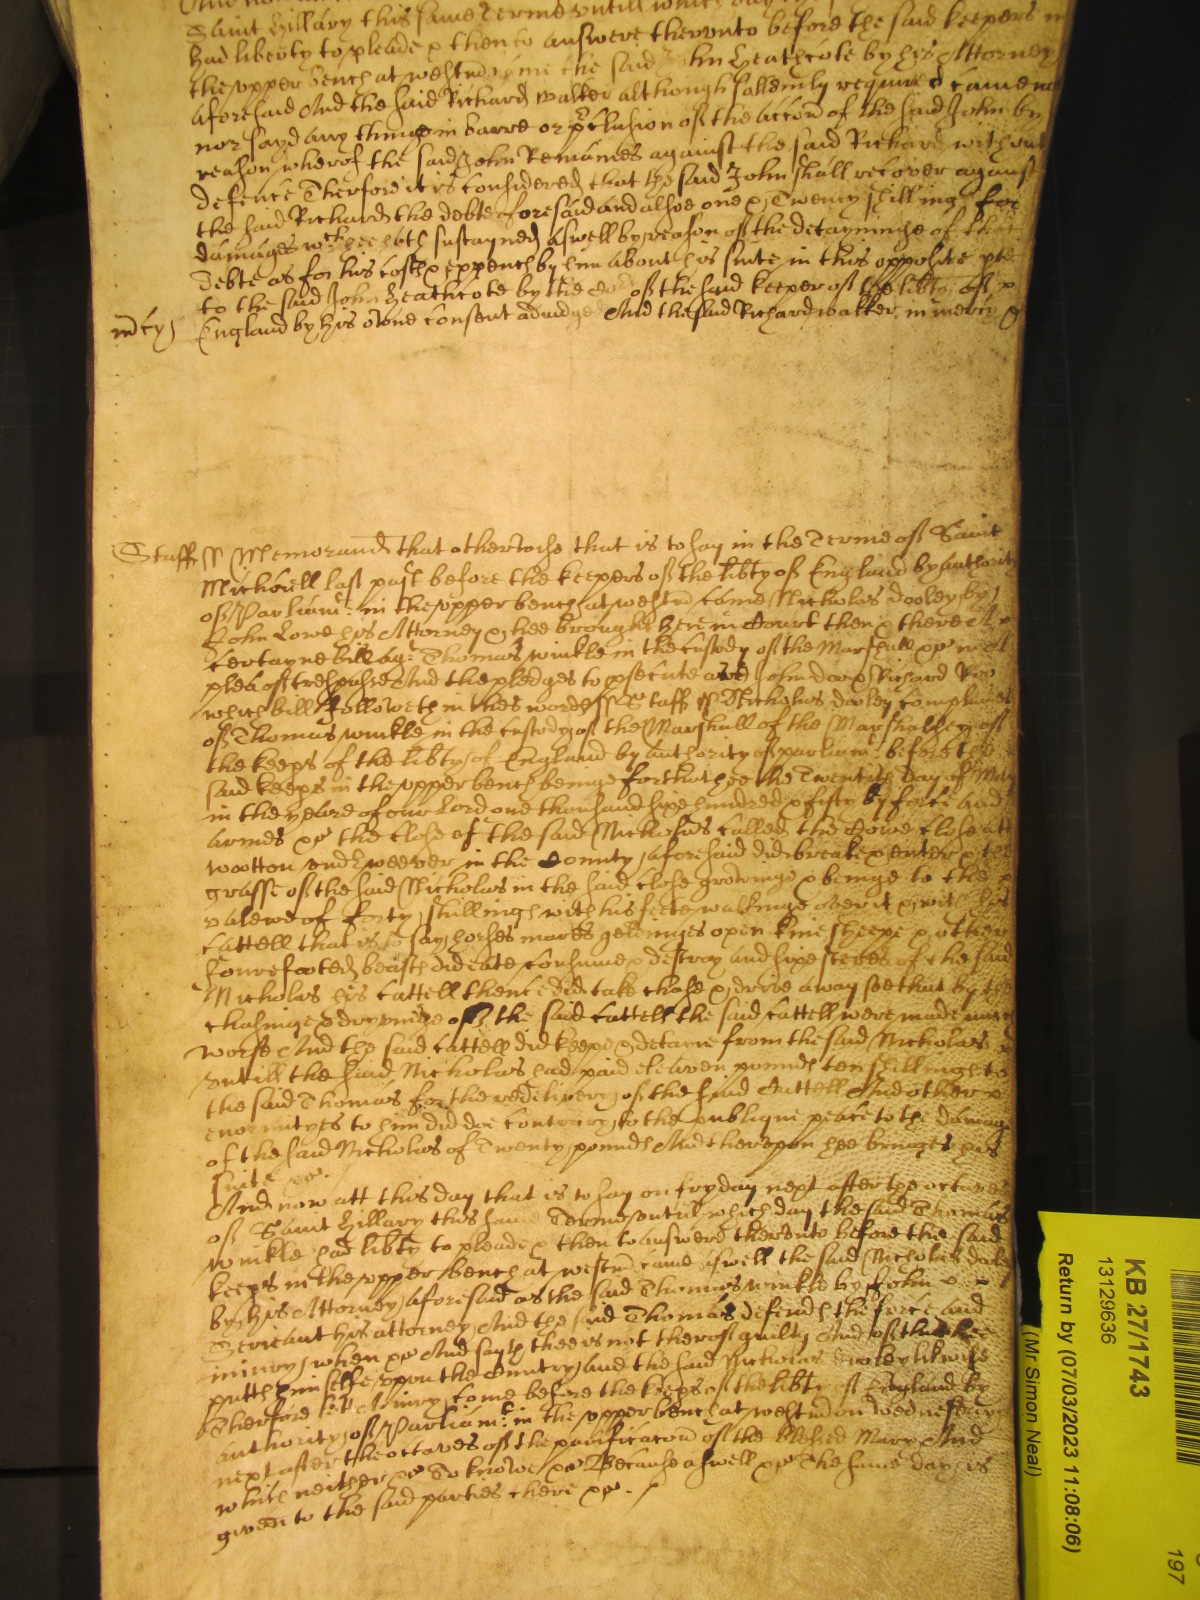 Saint Hillary this same Terme untill which day the
had liberty to pleade & then to answere therunto before the said keepers in
the upper bench at westm came the said John Heathcote by his Attorney
aforesaid And the said Richard walker although sollemly required came not
nor sayd any thinge in barre or pclusion of the accon of the said John by
reason wherof the said John Remaines against the said Richard without
defence Therfore it is considered that the said John shall recover against
the said Richard the debte aforesaid and alsoe one & Twenty shillings for
damages wch hee hath sustayned aswell by reason of the detayninge of that
debte as for his costs & expences by him about his suite in this
to the said John Heathcote by the of the said keepers of the libty of
mcy England by his owne consent adiudged And the said Richard walker in mercy &
Staff ss Memorand that otherwise that is to say in the Terme of Saint
Michaell last past before the keepers of the libty of England by authority
of Parliamt in the upper bench at westm came Nicholas dooley by
John Lowe his Attorney & hee brought here in Court then & there A
certayne bill agt Thomas winkle in the custody of the Marshall &c
plea of trespasse And the pledges to psecute are John doo & Richard Roo
which bill followeth in thes words ss Staff ss Nicholas dooley complaines
of Thomas winkle in the custody of the Marshall of the Marshallsey of
the keeps of the libty of England by authority of parliamt before the
said keeps in the upper bench beinge for that hee the Twentith day of May
in the yeare of our Lord one thousand sixe hundred & fifty by force and
armes &c the close of the said Nicholas called the Cowe close att
wootton under weever in the County aforesaid did breake & enter & the
grasse of the said Nicholas in the said close growinge & beinge to the
valewe of forty shillings with his feete walkinge over it & with his
Cattell that is to say horses mares geldinges oxen kine sheepe & other
fourefooted beasts did eate consume & destroy and sixe steeres of the said
Nicholas his Cattell thence did take chase & drive away soe that by the
chasinge & dryvinge of the said Cattell the said Cattell were made much
worse And the said Cattell did keepe & detaine from the said Nicholas
untill the said Nicholas had paid eleaven pounds ten shillings to
the said Thomas for the redelivery of the said Cattell And other
enormityes to him did doe contrary to the publique peace to the damage
of the said Nicholas of Twenty pounds And therupon hee bringes his
suite &c.
And now att this day that is to say on fryday next after the octaves
of Saint Hillary this same Terme untill which day the said Thomas
winkle had libty to pleade & then to answere therunto before the said
keeps in the upper bench at westm came aswell the said Nicholas dooley
by his Attorney aforesaid as the said Thomas winkle by John
Serieant his attorney And the said Thomas defends the force and
iniury when &c And sayth thee is not therof guilty And of that hee
putts himselfe upon the Country and the said Nicholas dooley likwise
Therfore lett A iury come before the keeps of the libty of England by
authority of Parliamt in the upper bench at westm on wednesday
next after the octaves of the purificacon of the blessed Mary And
which neither &c To knowe &c Because aswell &c The same day is
given to the said parties there &c.
KB 27/1743
13129636
Return by (07/03/2023 11:08:06)
(Mr Simon Neal)
197